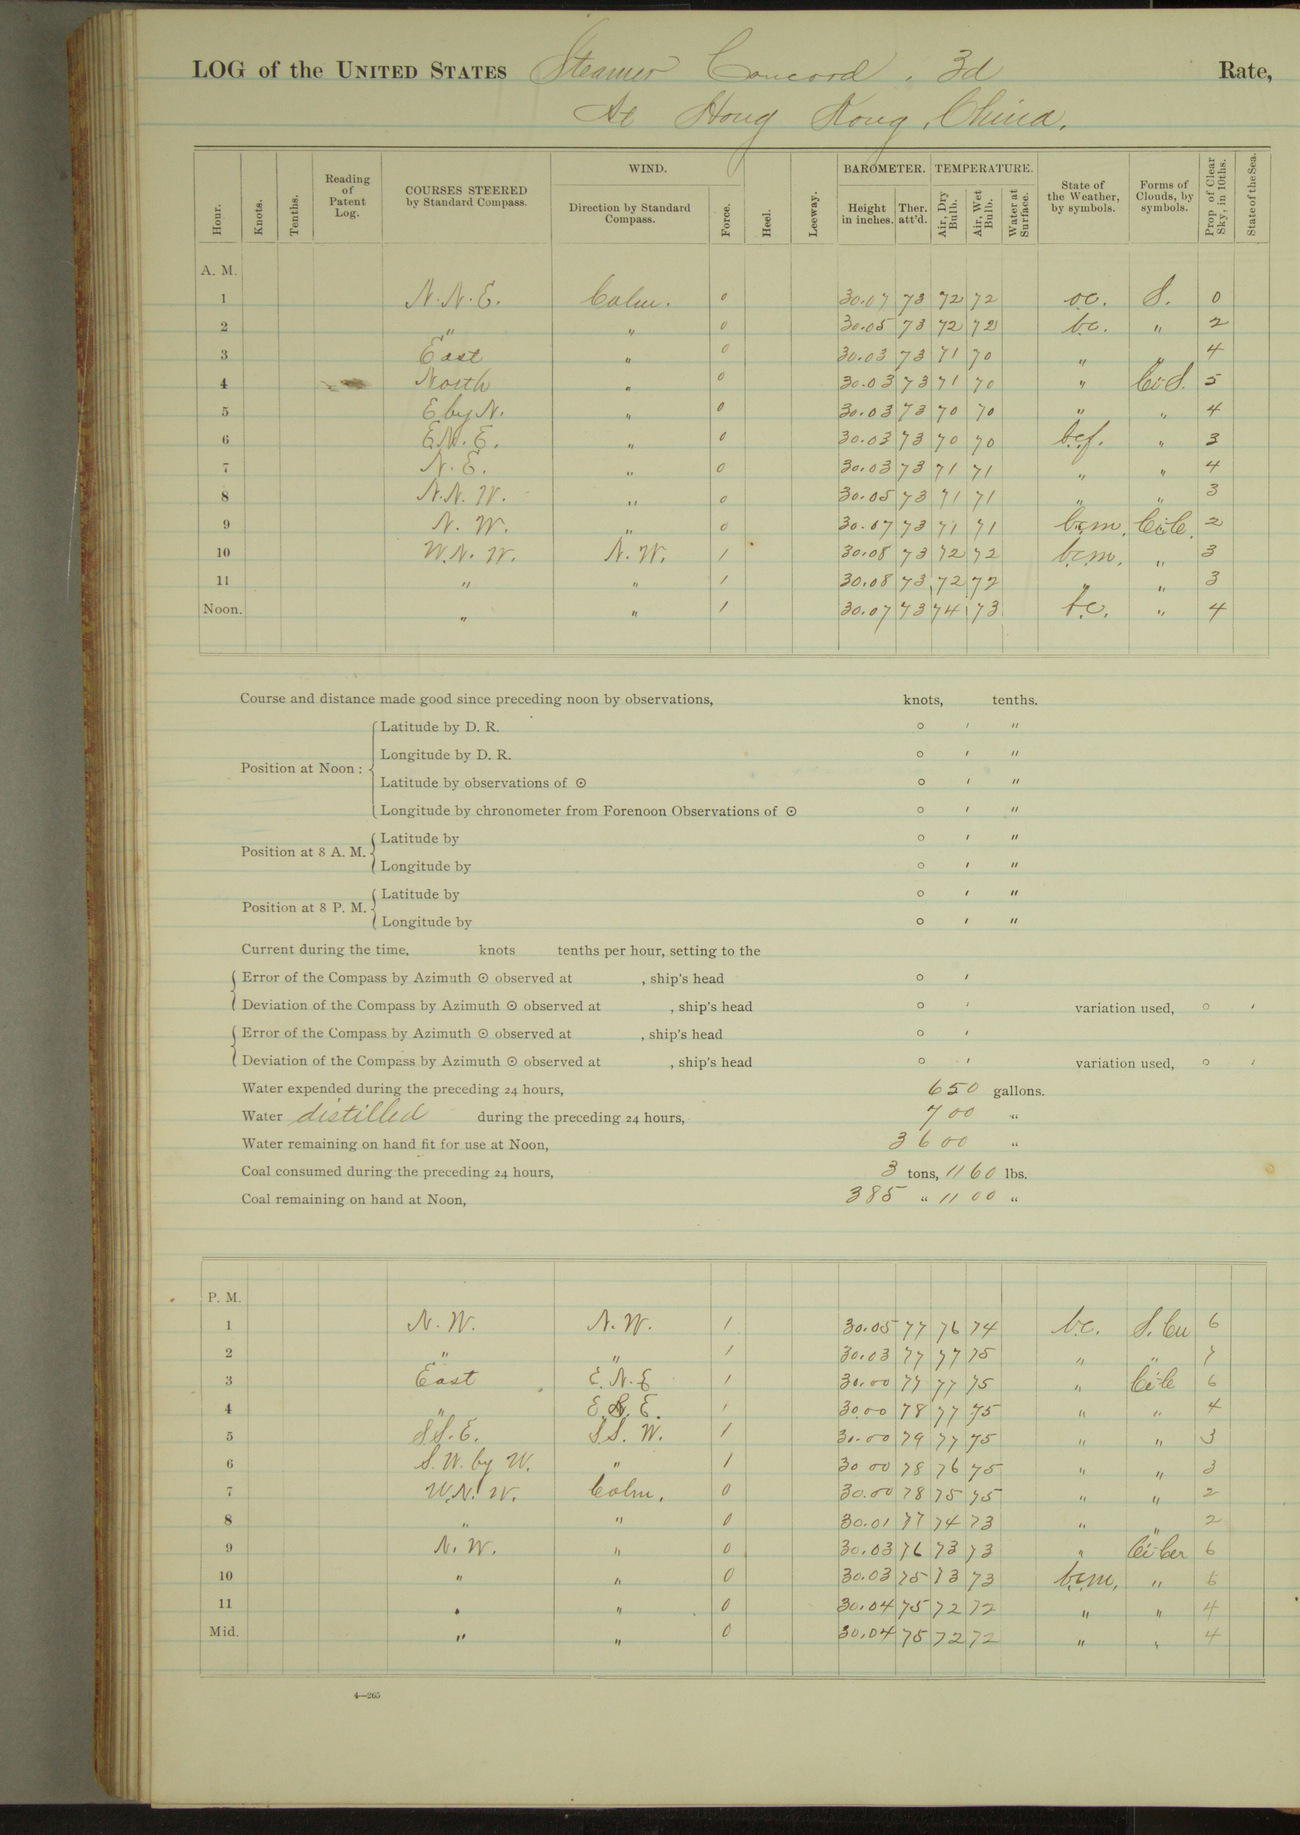 LOG of the UNITED STATES Steamer Concord, 3d Rate,
At Hong Kong, China.
Hour. Knots. Tenths. Reading of Patent Log. COURSES STEERED by Standard Compass. WIND. Direction by Standard Compass. Force. Heel. Leeway. BAROMETER. Height in inches. Ther. att'd. TEMPERATURE. Air, Dry Bulb. Air, Wet Bulb. Water at Surface. State of the Weather, by symbols. Forms of Clouds, by symbols. Prop. of Clear Sky, in 10ths. State of the Sea.
A. M.
1 N.N.E. Calm. 0 30.07 73 72 72 oc. S. 0
2 " " 0 30.05 73 72 72 bc. " 2
3 East " 0 30.03 73 71 70 " " 4
4 North " 0 30.03 73 71 70 " Ci-S. 5
5 E by N. " 0 30.03 73 70 70 " " 4
6 E.N.E. " 0 30.03 73 70 70 b.c.f. " 3
7 N.E. " 0 30.03 73 71 71 " " 4
8 N.N.W. " 0 30.05 73 71 71 " " 3
9 N.W. " 0 30.07 73 71 71 b.c.m. Ci-C. 2
10 W.N.W. N.W. 1 30.08 73 72 72 b.c.m. " 3
11 " " 1 30.08 73 72 72 " " 3
Noon. " " 1 30.07 73 74 73 b.c. " 4
Course and distance made good since preceding noon by observations, knots, tenths.
Position at Noon :
Latitude by D. R. ° ' "
Longitude by D. R. ° ' "
Latitude by observations of ⊙ ° ' "
Longitude by chronometer from Forenoon Observations of ⊙ ° ' "
Position at 8 A. M.
Latitude by ° ' "
Longitude by ° ' "
Position at 8 P. M.
Latitude by ° ' "
Longitude by ° ' "
Current during the time, knots tenths per hour, setting to the
Error of the Compass by Azimuth ⊙ observed at , ship's head ° '
Deviation of the Compass by Azimuth ⊙ observed at , ship's head ° ' variation used, ° '
Error of the Compass by Azimuth ⊙ observed at , ship's head ° '
Deviation of the Compass by Azimuth ⊙ observed at , ship's head ° ' variation used, ° '
Water expended during the preceding 24 hours, 650 gallons.
Water distilled during the preceding 24 hours, 700 "
Water remaining on hand fit for use at Noon, 3600 "
Coal consumed during the preceding 24 hours, 3 tons, 1160 lbs.
Coal remaining on hand at Noon, 385 " 1100 "
P. M.
1 N.W. N.W. 1 30.05 77 76 74 b.c. S.Cu 6
2 " " 1 30.03 77 77 75 " " 7
3 East E.N.E 1 30.00 77 77 75 " Ci-C 6
4 " E. E. 1 30.00 78 77 75 " " 4
5 S.S.E. S.S.W. 1 30.00 79 77 75 " " 3
6 S.W. by W. " 1 30 00 78 76 75 " " 3
7 W.N.W. Calm. 0 30.00 78 75 75 " " 2
8 " " 0 30.01 77 74 73 " " 2
9 N.W. " 0 30.03 76 73 73 " Ci-Cu 6
10 " " 0 30.03 75 73 73 b.c.m. "
11 " " 0 30.04 75 72 72 " " 4
Mid. " " 0 30.04 75 72 72 " " 4
4—265